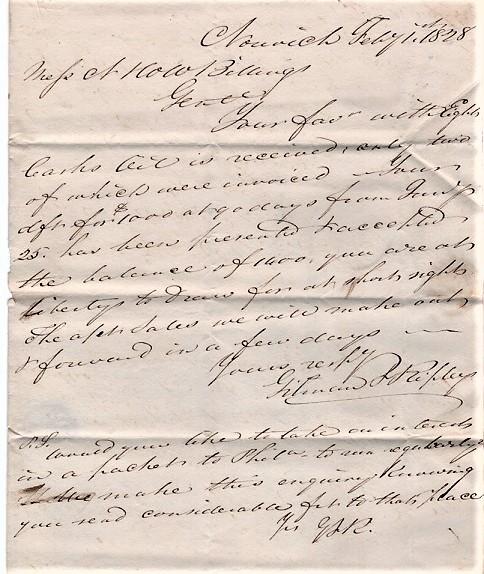 Norwich Feby 1st. 1828
Messrs N H & W Billings
Gentn
Your favr with Eight
Casks Oil is received, only two
of which were invoiced - Your
dft for $1000 at 90 days from Jany
25. has been presented & accepted
the balance of 1400, you are at
liberty to Draw for at short sight
The a/ct Sales we will make out
& forward in a few days —
Yours respy
Gilman & Ripley
P.S. would you like to take an interest
in a packet to Phila. to run regularly
make this enquiry knowing
you send considerable frt to that place
Yrs G&R.